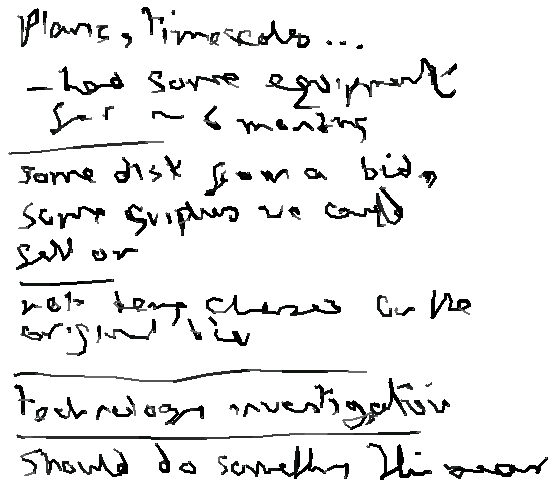 Plans, timescales...
- had some equipment
for ~ 6 months
some disk from a bid,
some surplus we could
sell on
not being charged on the
original bid
technology investigation
should do something this year